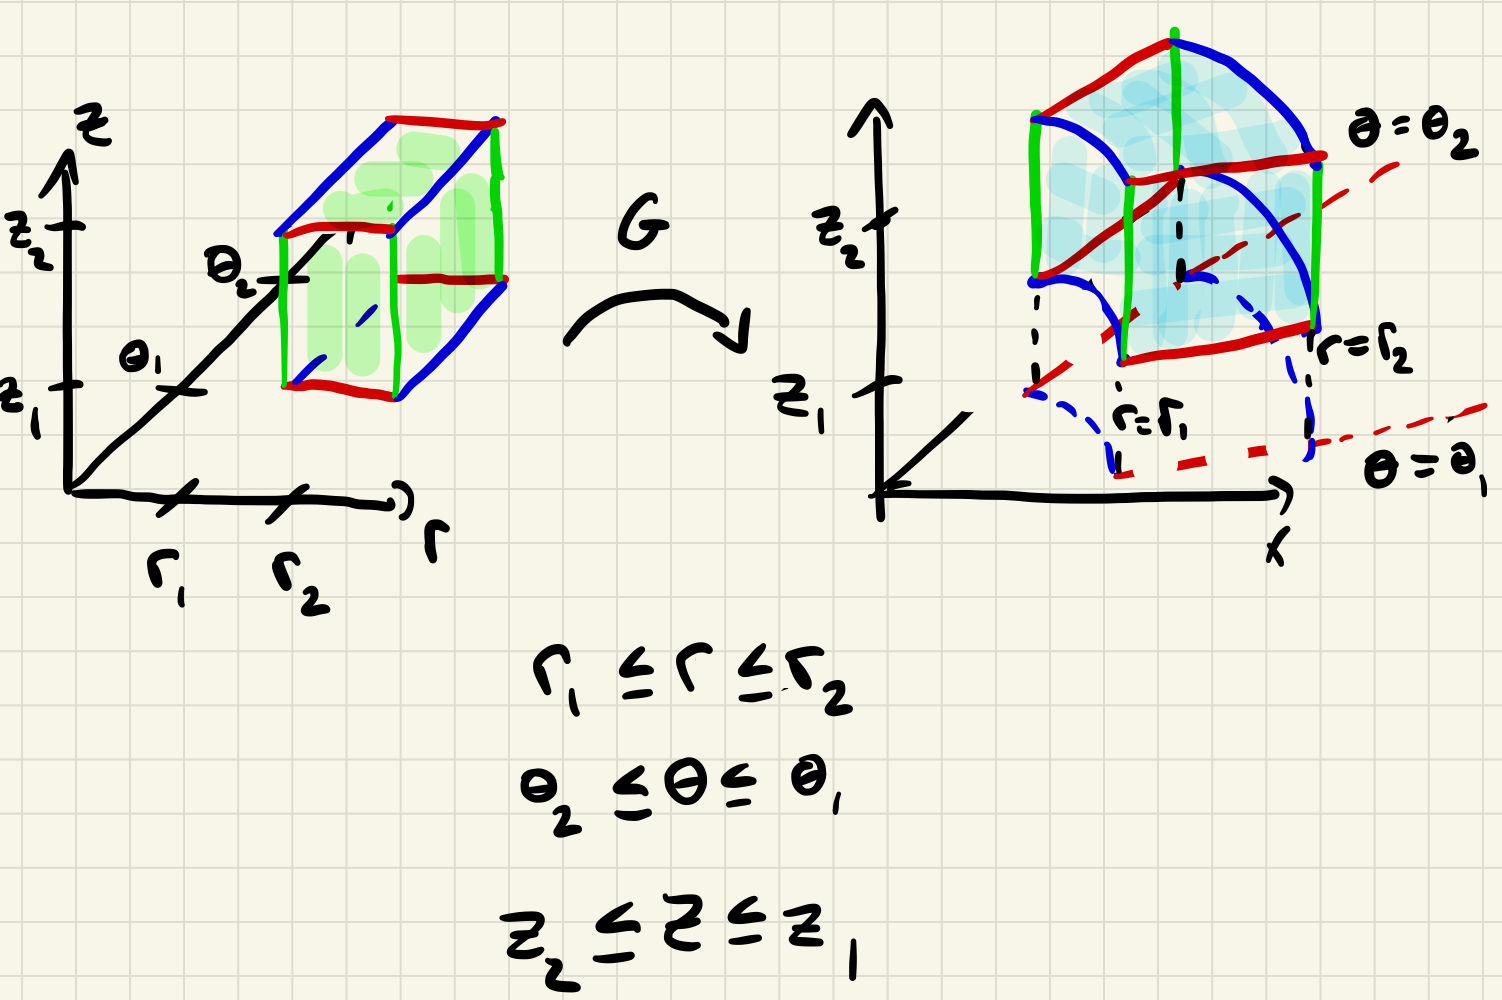 z
z₂
θ₂
θ₁
z₁
r₁
r₂
r
G
z₂
z₁
θ = θ₂
r = r₂
r = r₁
θ = θ₁
x
r₁ ≤ r ≤ r₂
θ₂ ≤ θ ≤ θ₁
z₂ ≤ z ≤ z₁